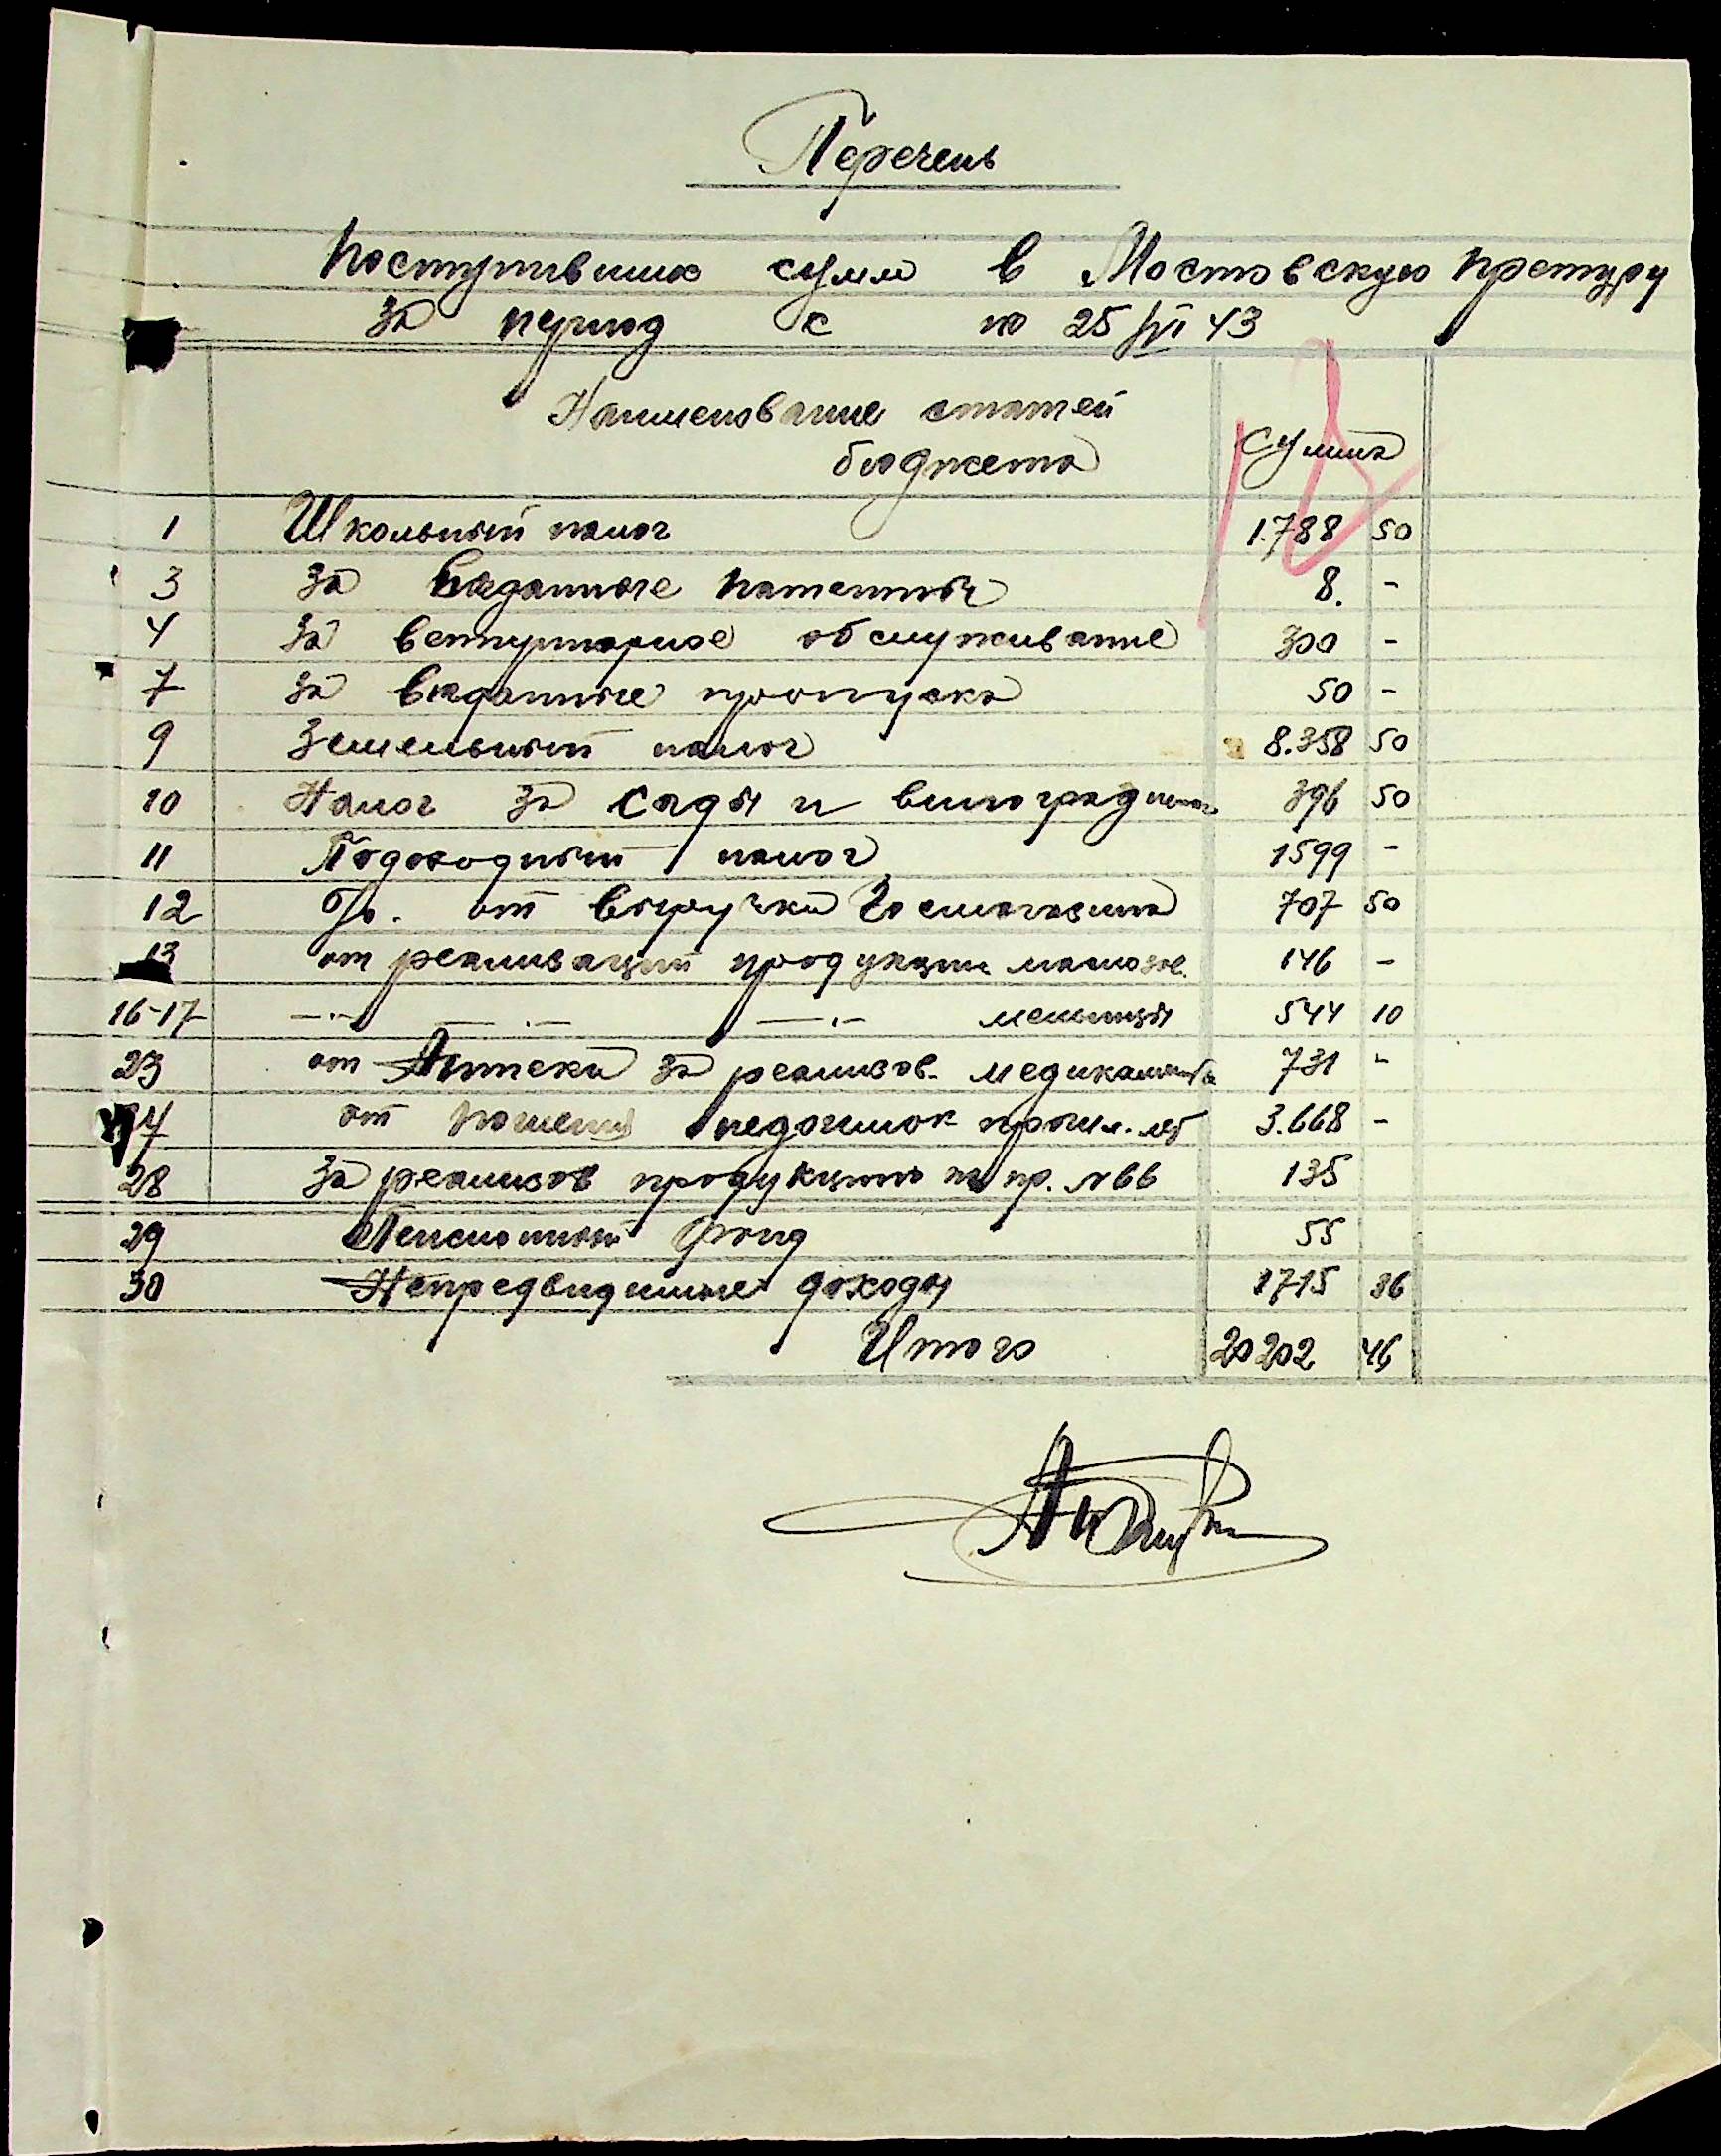 Перечень
поступивших сумм в Мостовскую претуру
за период с по 25/VI 43
Наименование статей
бюджета Сумма
1 Школьный налог 1.788 50
3 За выданные патенты 8. -
4 За ветеринарное обслуживание 300 -
7 За выданные пропуска 50 -
9 Земельный налог 8.358 50
10 Налог за сады и виноградник 396 50
11 Подоходный налог 1599 -
12 % от выручки Госмагазина 707 50
13 от реализации продукции маслозав. 146 -
16-17 —·— —·— —·— мельницы 544 10
23 от Аптеки за реализов. медикаменты 731 -
24 от недоимок прошл. лет 3.668 -
28 За реализов продукцию 135
29 Пенсионный фонд 55
30 Непредвиденные доходы 1715 86
Итого 20202 46